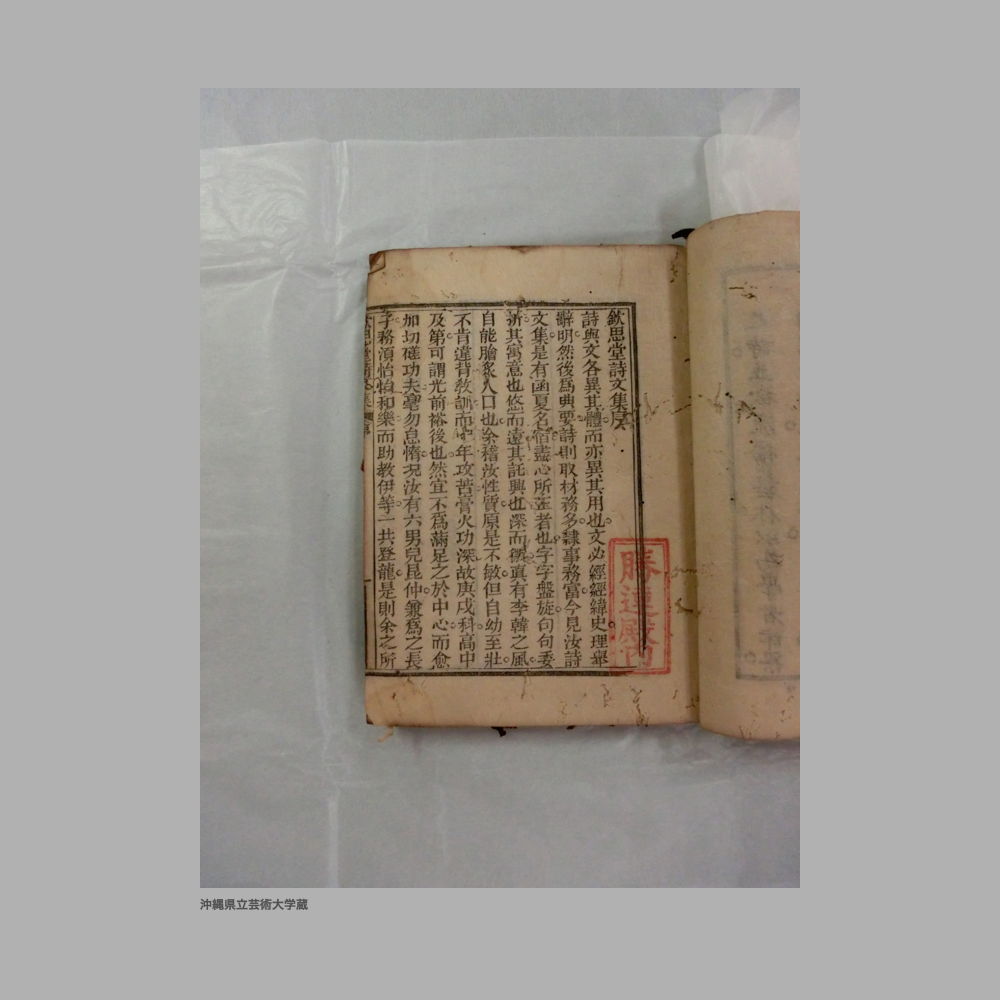 欽思堂詩文集序
詩與文各異其體而亦異其用也文必經經緯史理舉
辭明然後爲典要詩則取材務多隸事務富今見汝詩
文集是有函夏名宿盡心所至者也字字盤旋句句委
折其寓意也悠而遠其託興也深而微眞有李韓之風
自能膾炙人口也余稽汝性質原是不敏但自幼至壯
不肯違背敎訓而年攻苦膏火功深故庚戌科高中
及第可謂光前裕後也然宜不爲滿足之於中心而愈
加切磋功夫毫勿怠惰况汝有六男兒昆仲兼爲之長
子務須怡怡和樂而助教伊等一共登龍是則余之所
勝連殿內
沖縄県立芸術大学蔵